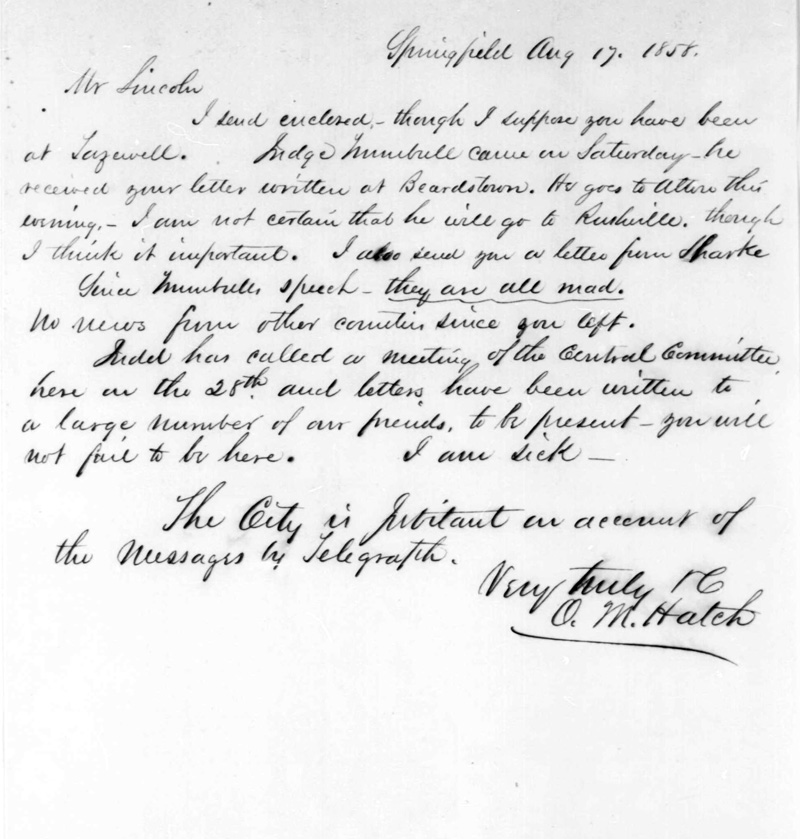 Springfield Aug 17. 1858.
Mr Lincoln
I send enclosed,- though I suppose you have been
at Tazewell. Judge Trumbull came on Saturday-he
received your letter written at Beardstown. He goes to Alton this
evening,- I am not certain that he will go to Rushville. though
I think it important. I also send you a letter from
Since Trumbulls speech- they are all mad.
No news from other counties since you left.
Judd has called a meeting of the Central Committee,
here on the 28th and letters have been written to
a large number of our friends, to be present- you will
not fail to be here. I am sick-
The City is Jubilant on account of
the Messages by Telegraph.
Very truly &C
O. M. Hatch